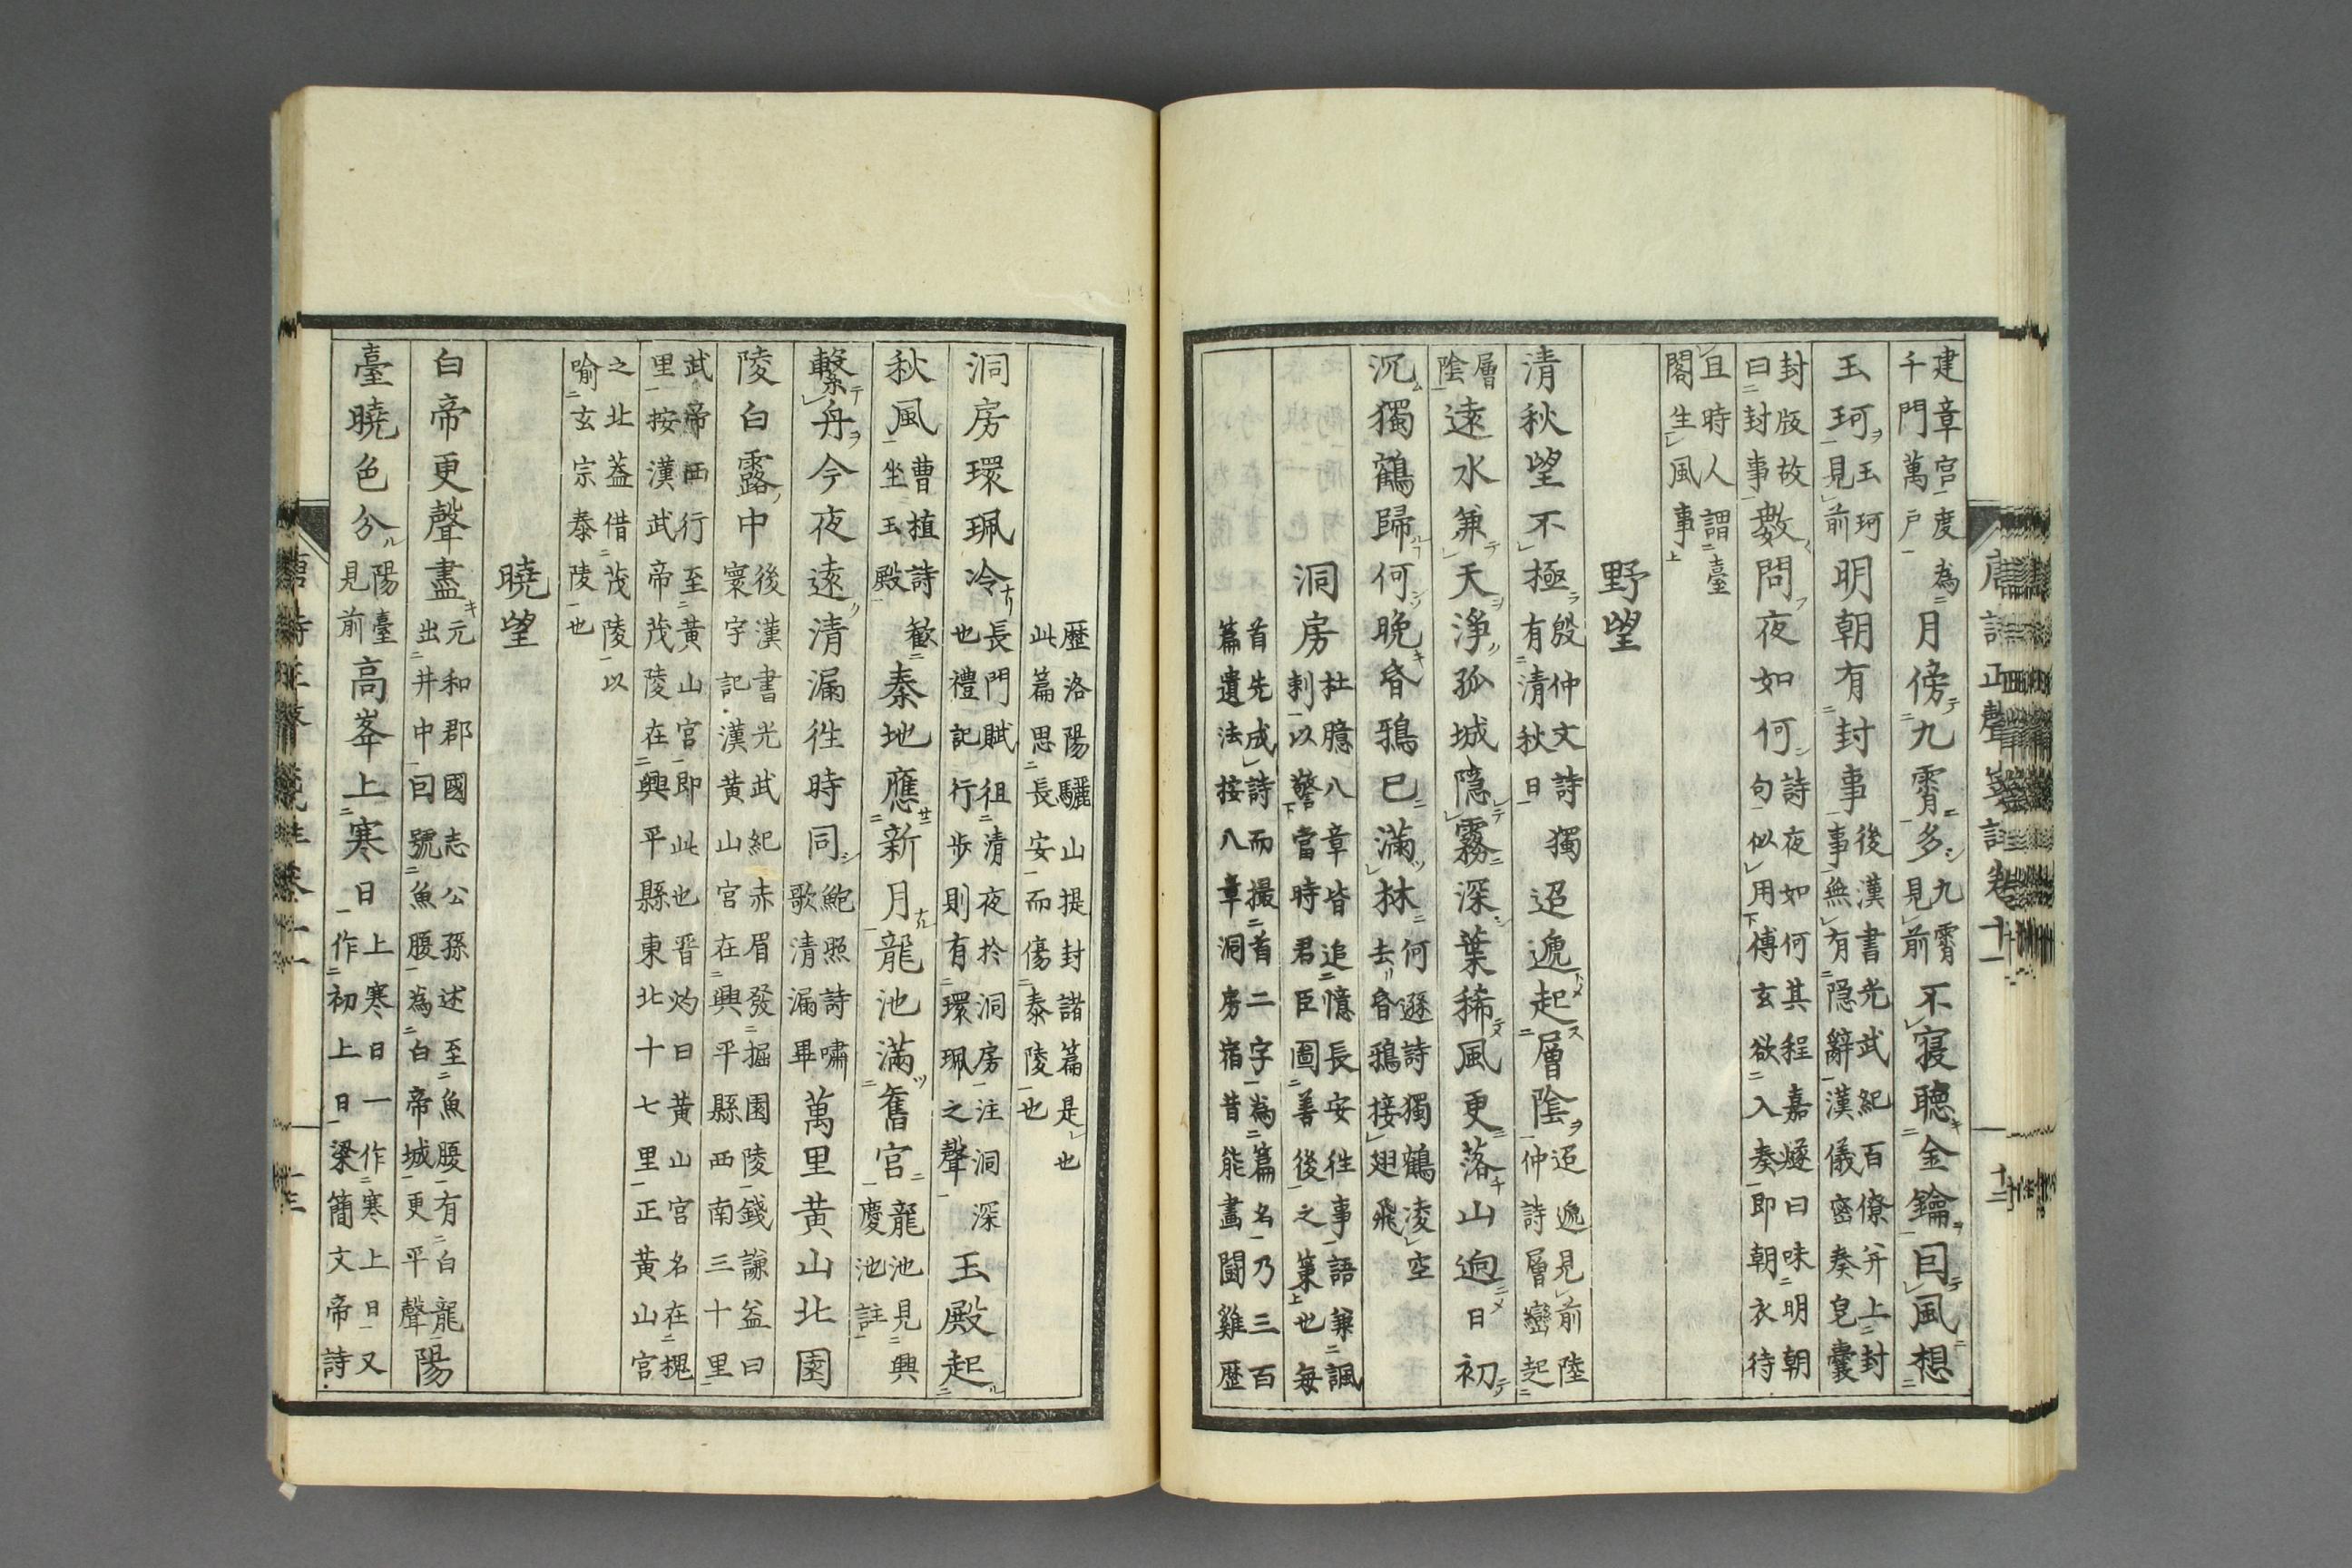 唐詩正聲箋註卷十一　十二
建章宮度為千門萬戶月傍九霄多九霄見前不寢聽金鑰因風想
玉珂玉珂見前明朝有封事後漢書光武紀百僚并上封事無有隱辭漢儀密奏皂囊
封版故曰封事數問夜如何詩夜如何其程嘉燧曰味明朝句似用傅玄欲入奏即朝衣待
且時人謂臺閣生風事
野望
清秋望不極殷仲文詩獨有清秋日迢遞起層陰迢遞見前陸仲詩層巒起
層陰遠水兼天淨孤城隱霧深葉稀風更落山逈日初
沉獨鶴歸何晚昏鴉已滿林何遜詩獨鶴凌空去昏鴉接翅飛
洞房杜臆八章皆追憶長安往事語兼諷刺以警當時君臣圖善後之策也每
首先成詩而撮首二字為篇名乃三百篇遺法按八章洞房宿昔能畫鬪雞歷
歷洛陽驪山提封諸篇是也此篇思長安而傷泰陵也
洞房環珮冷長門賦徂清夜於洞房注洞深也禮記行步則有環珮之聲玉殿起
秋風曹植詩歡坐玉殿秦地應新月龍池滿舊宮龍池見興慶池註
繫舟今夜遠清漏往時同鮑照詩嘯歌清漏畢萬里黃山北園
陵白露中後漢書光武紀赤眉發掘園陵錢謙益曰寰宇記漢黃山宮在興平縣西南三十里
武帝西行至黃山宮即此也晉灼曰黃山宮名在槐里按漢武帝茂陵在興平縣東北十七里正黃山宮
之北蓋借茂陵以喻玄宗泰陵也
曉望
白帝更聲盡元和郡國志公孫述至魚腹有白龍出井中因號魚腹為白帝城更平聲陽
臺曉色分陽臺見前高峯上寒日上寒日一作寒上日又作初上日梁簡文帝詩